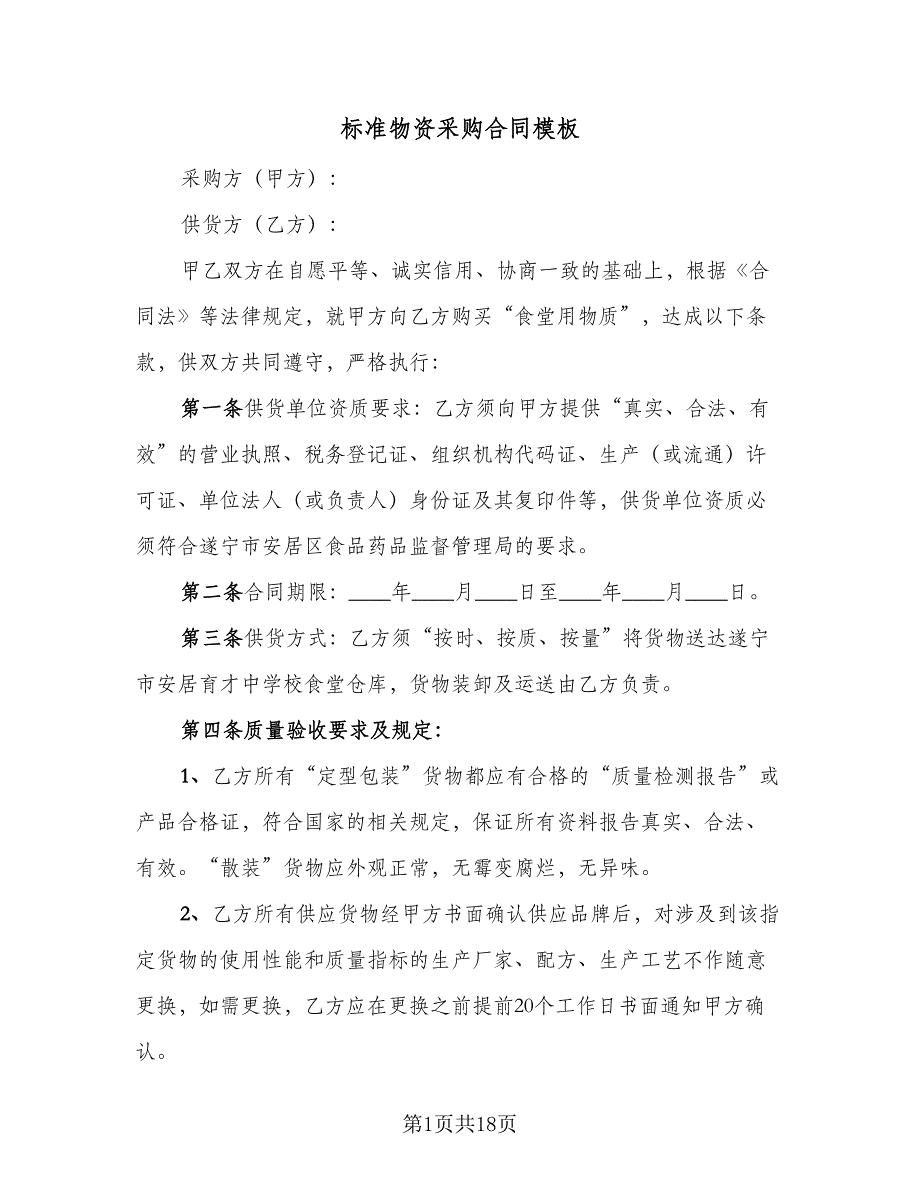 标准物资采购合同模板
采购方（甲方）：
供货方（乙方）：
甲乙双方在自愿平等、诚实信用、协商一致的基础上，根据《合
同法》等法律规定，就甲方向乙方购买“食堂用物质”，达成以下条
款，供双方共同遵守，严格执行：
第一条供货单位资质要求：乙方须向甲方提供“真实、合法、有
效”的营业执照、税务登记证、组织机构代码证、生产（或流通）许
可证、单位法人（或负责人）身份证及其复印件等，供货单位资质必
须符合遂宁市安居区食品药品监督管理局的要求。
第二条合同期限：____年____月____日至____年____月____日。
第三条供货方式：乙方须“按时、按质、按量”将货物送达遂宁
市安居育才中学校食堂仓库，货物装卸及运送由乙方负责。
第四条质量验收要求及规定：
1、乙方所有“定型包装”货物都应有合格的“质量检测报告”或
产品合格证，符合国家的相关规定，保证所有资料报告真实、合法、
有效。“散装”货物应外观正常，无霉变腐烂，无异味。
2、乙方所有供应货物经甲方书面确认供应品牌后，对涉及到该指
定货物的使用性能和质量指标的生产厂家、配方、生产工艺不作随意
更换，如需更换，乙方应在更换之前提前20个工作日书面通知甲方确
认。
第1页共18页